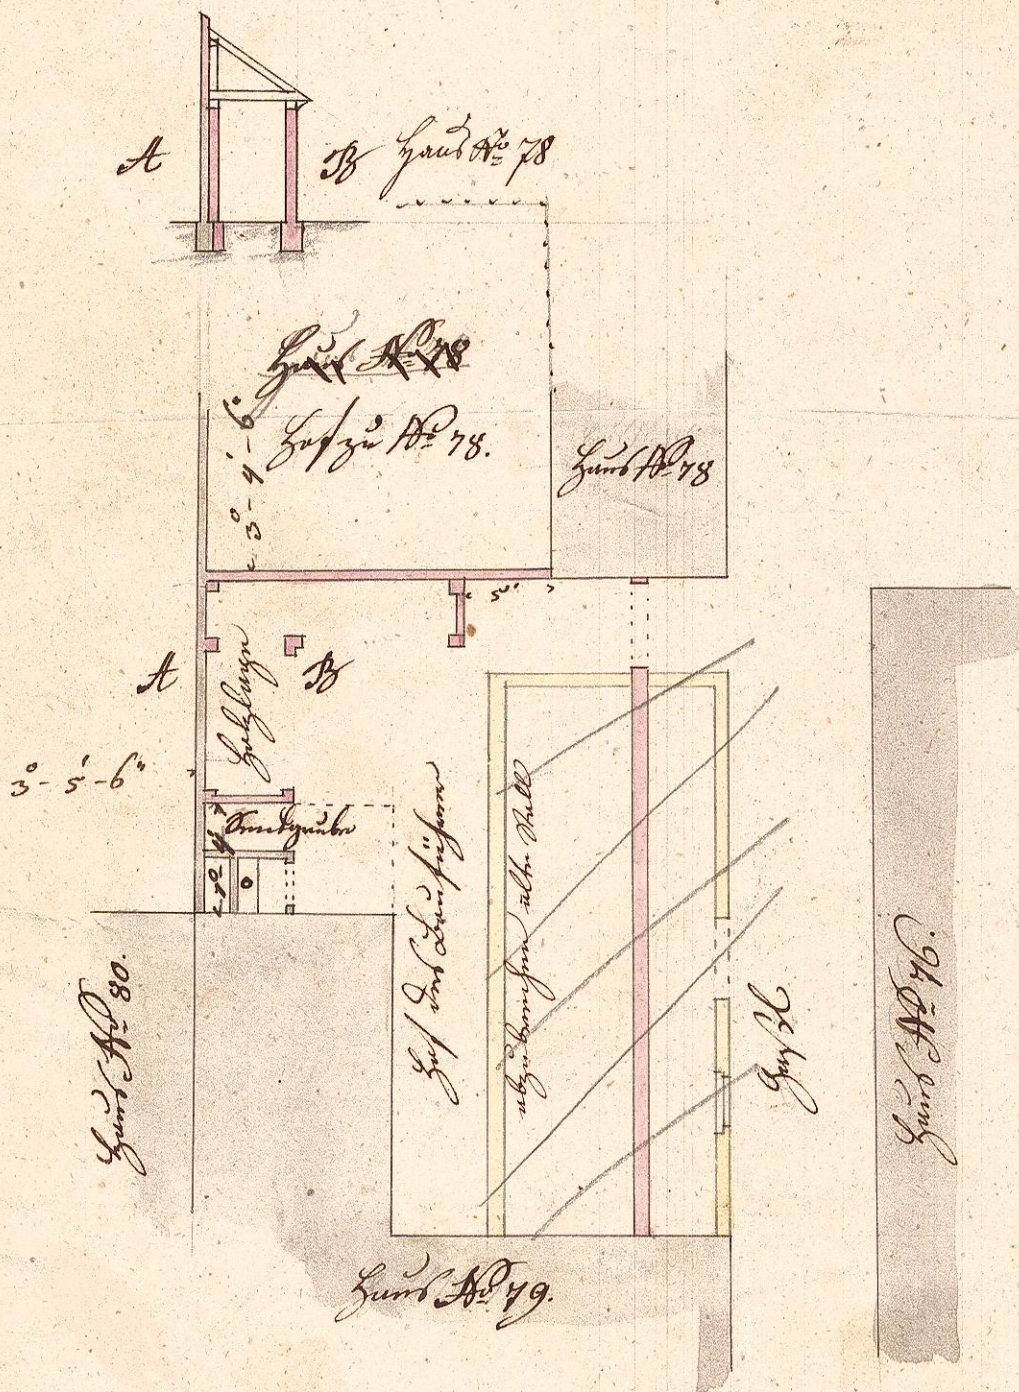 A
B
Haus No 78
Haus No 78
Hof zu No 78.
3° - 4' - 6"
Haus No 78
5'
A
B
Holzlage
3° - 5' - 6"
Senkgrube
1° 4'
Hof des Bauführer
abzubrechen alte Stall
Haus No 80.
Gassl
Haus No 76.
Haus No 79.